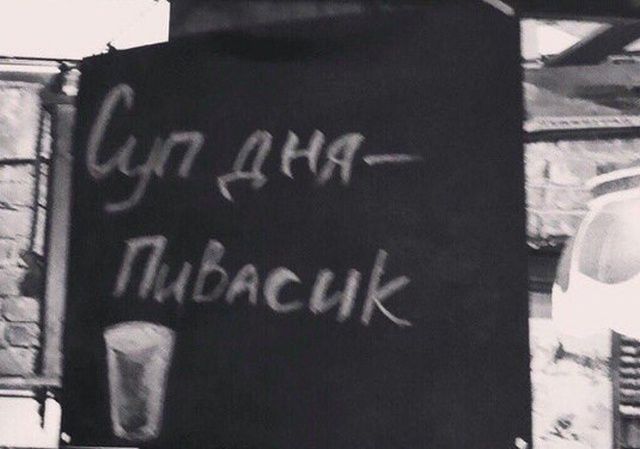 Суп дня –
Пивасик